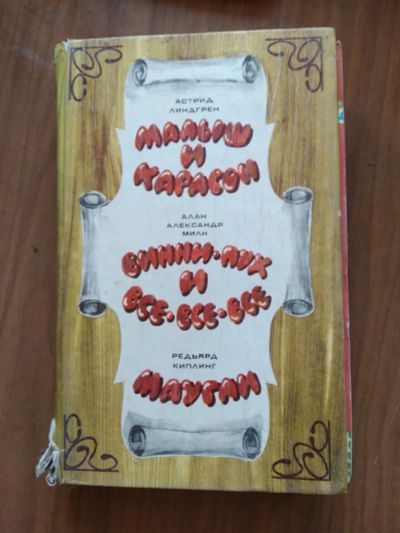 АСТРИД
ЛИНДГРЕН
МАЛЫШ
И
КАРЛСОН
АЛАН
АЛЕКСАНДР
МИЛН
ВИННИ-ПУХ
И
ВСЕ-ВСЕ-ВСЕ
РЕДЬЯРД
КИПЛИНГ
МАУГЛИ